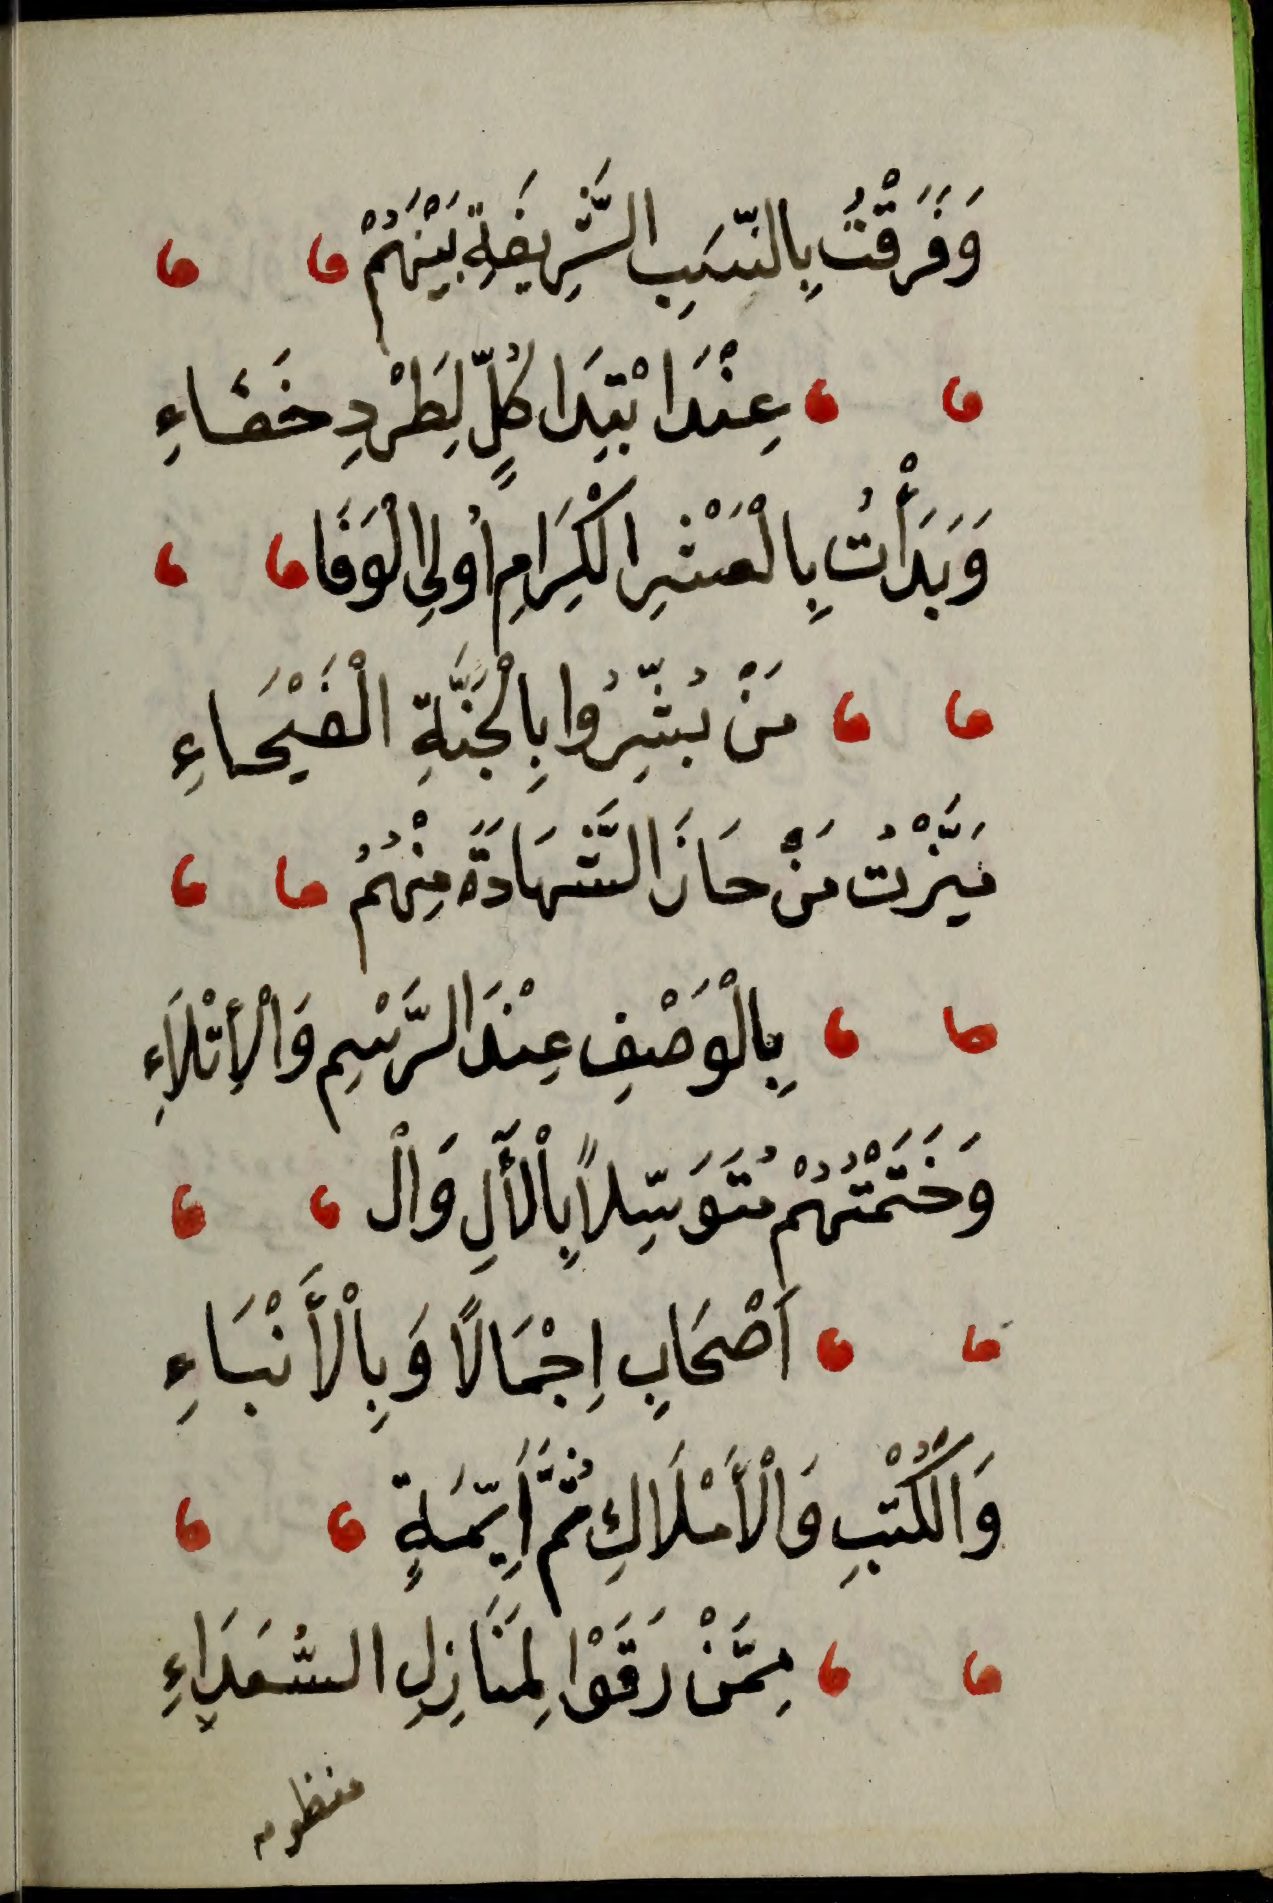 وَفَرَقْتُ بِالنِّسَبِ الشَّرِيفَةِ بَيْنَهُمْ
عِنْدَ ابْتِدَا كُلٍّ لِطَرْدِ خَفَاءِ
وَبَدَأْتُ بِالْعَشْرِ الْكِرَامِ اُولِي الْوَفَا
مَنْ بُشِّرُوا بِالْجَنَّةِ الْفَيْحَاءِ
مَيَّزْتُ مَنْ حَازَ الشَّهَادَةَ مِنْهُمُ
بِالْوَصْفِ عِنْدَ الرَّسْمِ وَالْاِتْلَاءِ
وَخَتَمْتُهُمْ مُتَوَسِّلاً بِالْآلِ وَالْ
اَصْحَابِ اِجْمَالًا وَبِالْأَنْبَاءِ
وَالْكُتْبِ وَالْأَمْلَاكِ ثُمَّ اَيِمَّةٍ
مِمَّنْ رَقَوْا لِمَنَازِلِ السُّعَدَاءِ
منظومه